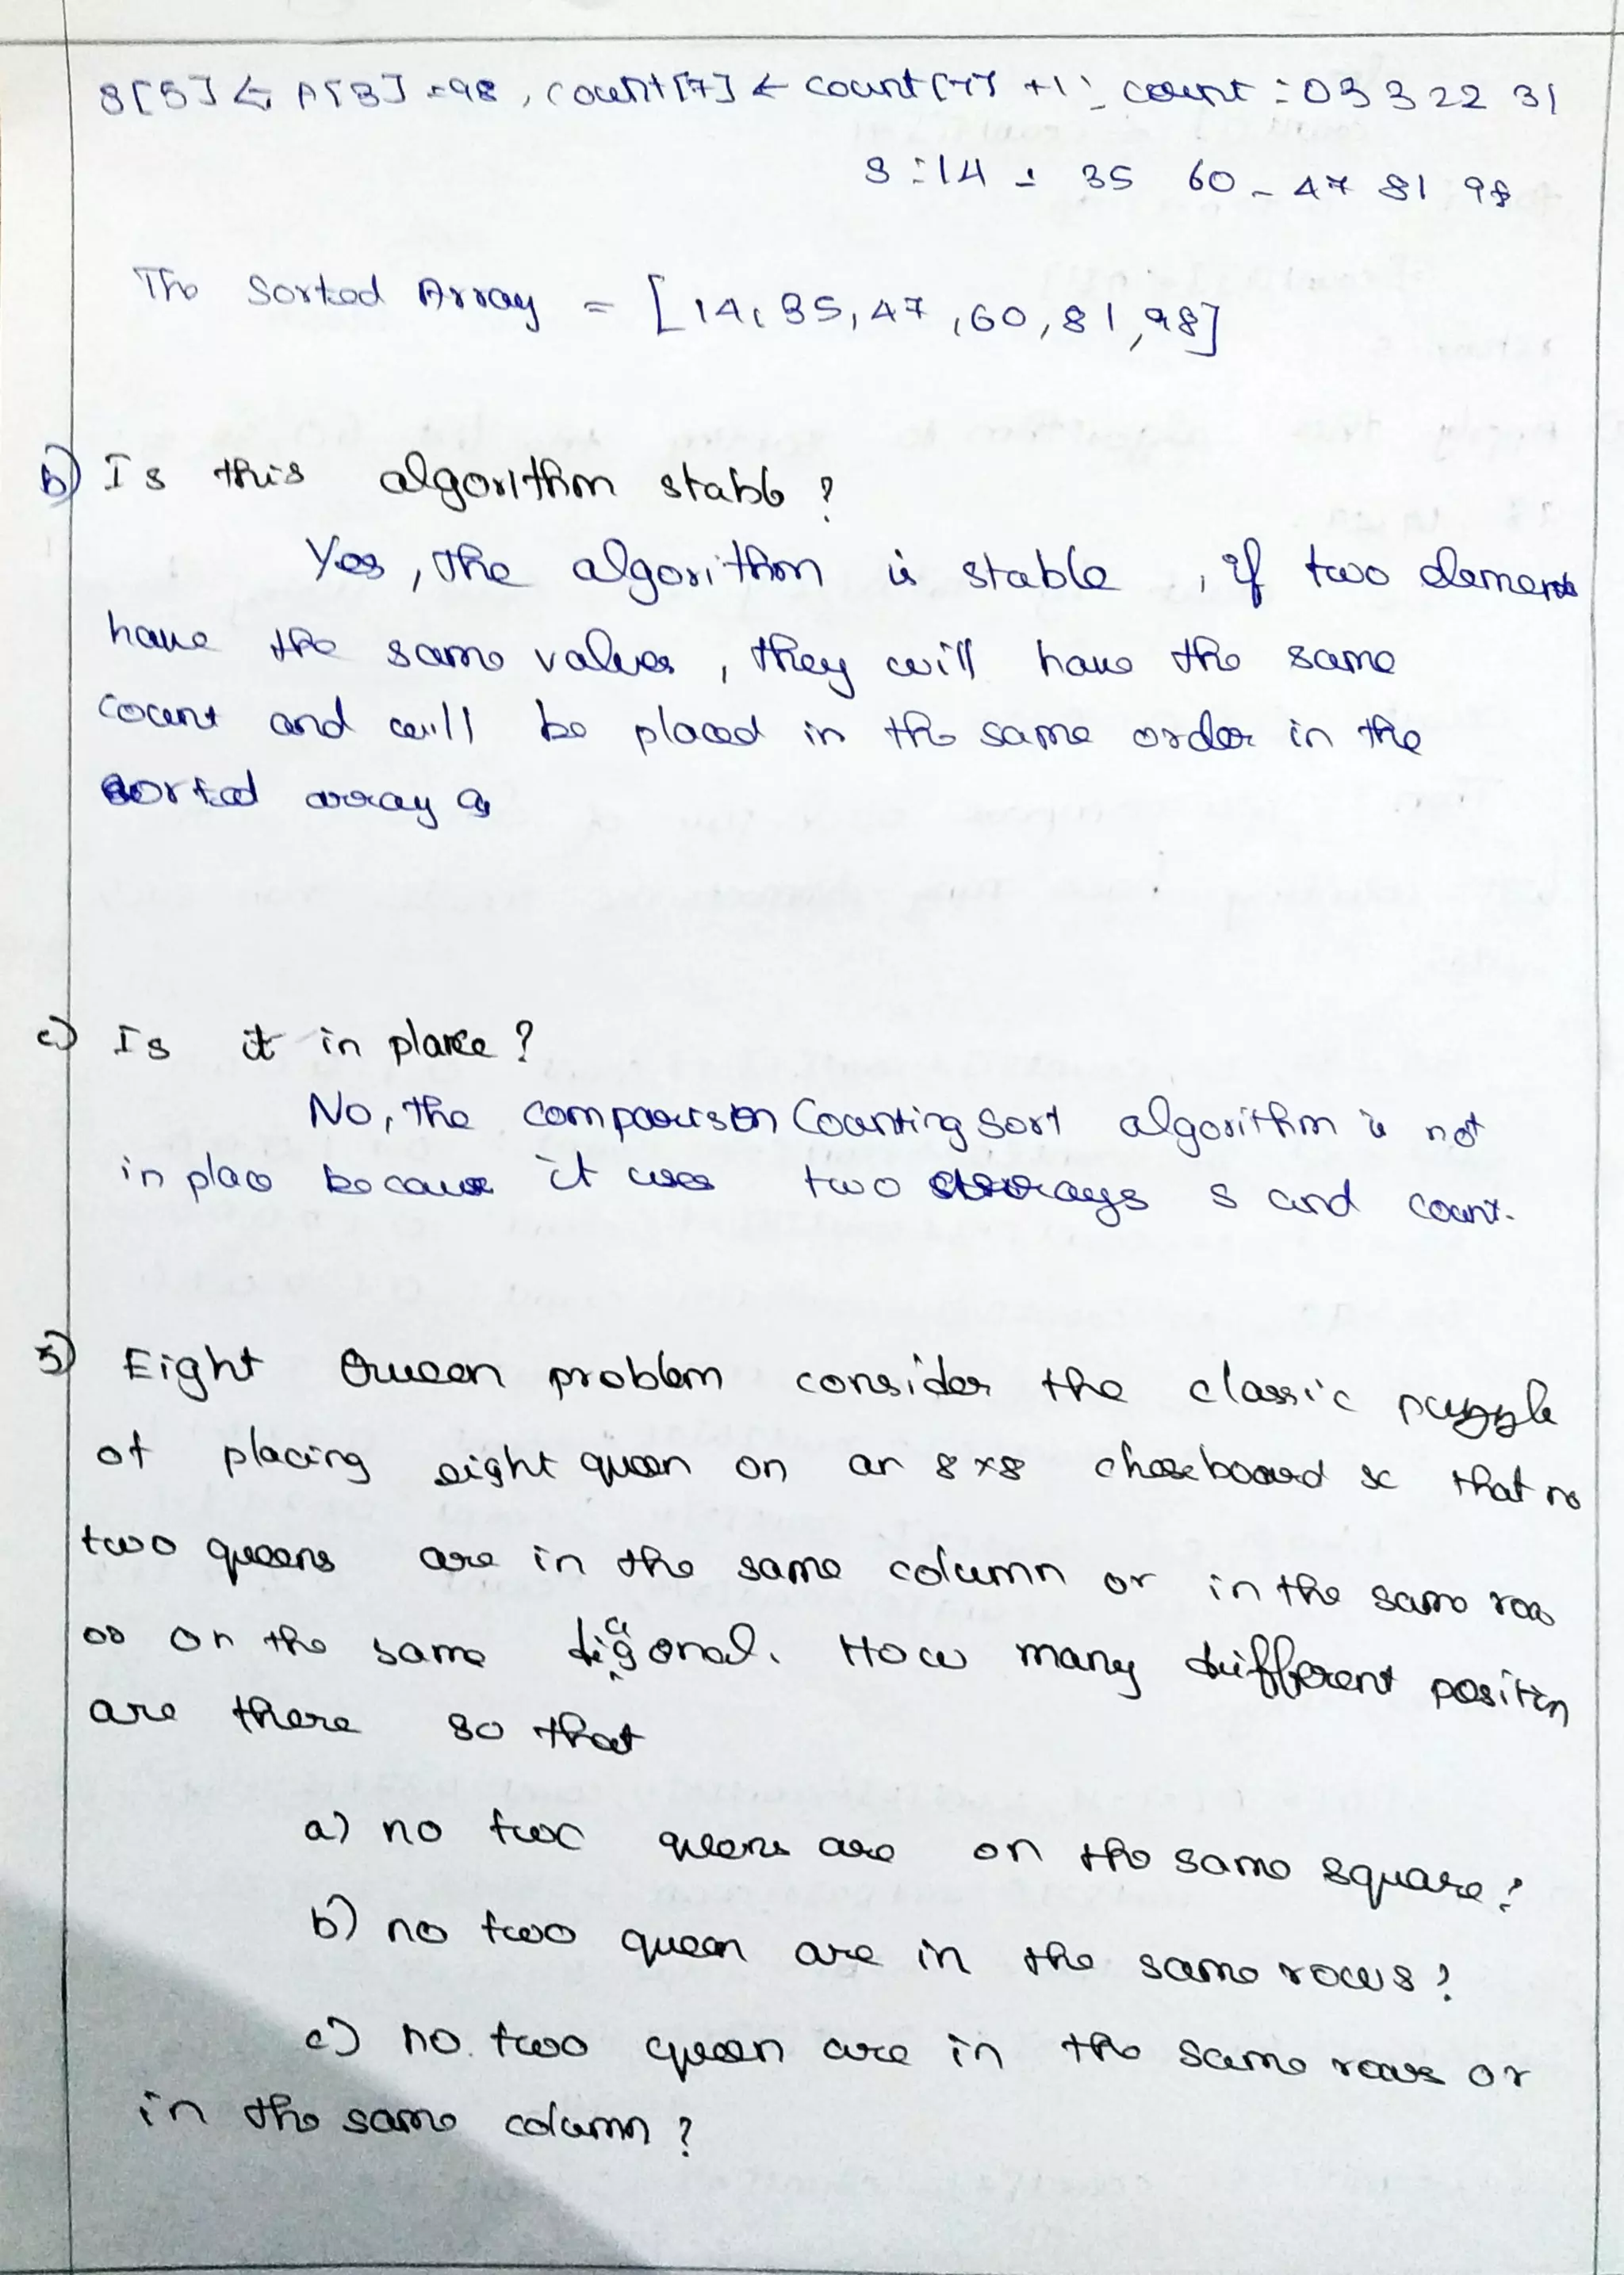 S[5] ← A[3] = 98, count[7] ← count[7] +1; count : 03 3 22 31
S : 14 - 35 60 - 47 81 98
The Sorted Array = [14, 35, 47, 60, 81, 98]
b) Is this algorithm stable ?
Yes, the algorithm is stable , if two elements
have the same values , they will have the same
count and will be placed in the same order in the
sorted array as
c) Is it in place ?
No, the comparison Counting Sort algorithm is not
in place because it uses two arrays s and count.
5) Eight Queen problem consider the classic puzzle
of placing eight queen on an 8×8 chessboard so that no
two queens are in the same column or in the same row
or on the same diagonal. How many different position
are there so that
a) no two queens are on the same square?
b) no two queen are in the same rows?
c) no two queen are in the same rows or
in the same column ?